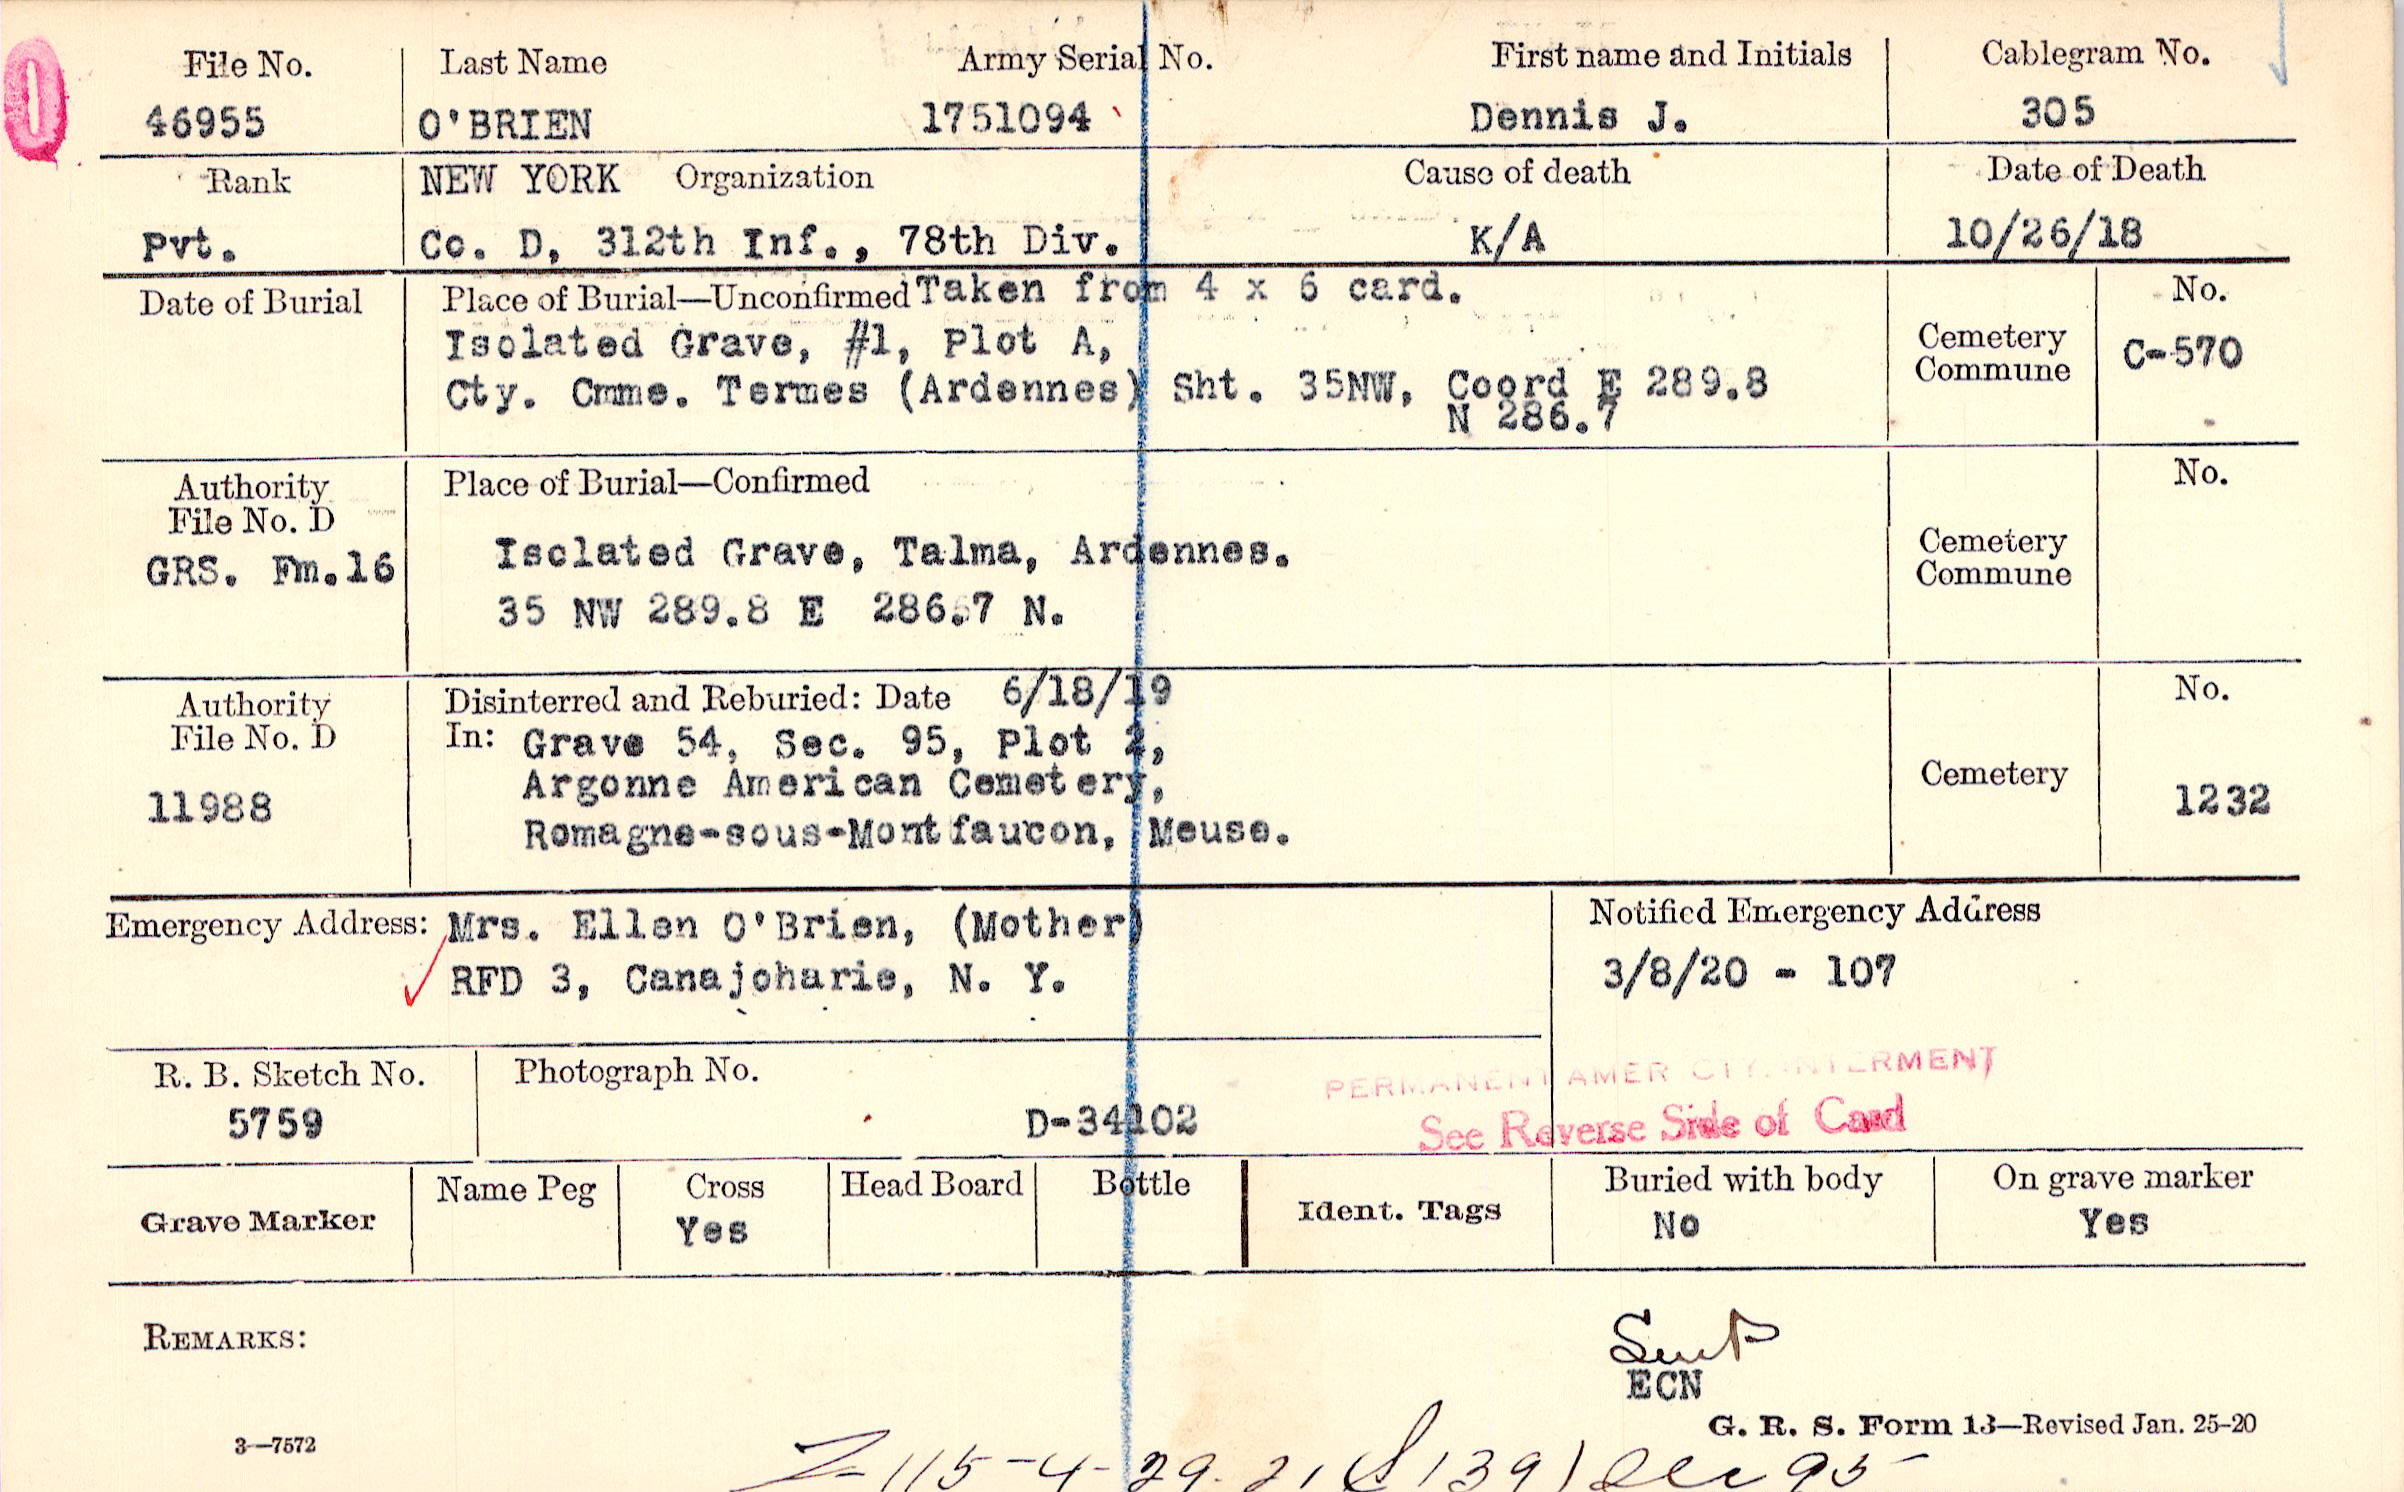 O
File No. Last Name Army Serial No. First name and Initials Cablegram No.
46955 O'BRIEN 1751094 Dennis J. 305
Rank NEW YORK Organization Cause of death Date of Death
Pvt. Co. D, 312th Inf., 78th Div. K/A 10/26/18
Date of Burial Place of Burial—Unconfirmed Taken from 4 x 6 card. No.
Isolated Grave, #1, Plot A, Cemetery
Commune C-570
Cty. Cmme. Termes (Ardennes) Sht. 35NW, Coord E 289.8
N 286.7
Authority Place of Burial—Confirmed No.
File No. D
GRS. Fm.16 Isolated Grave, Talma, Ardennes. Cemetery
Commune
35 NW 289.8 E 286.7 N.
Authority Disinterred and Reburied: Date 6/18/19 No.
File No. D In: Grave 54, Sec. 95, Plot 2,
11988 Argonne American Cemetery, Cemetery 1232
Romagne-sous-Montfaucon, Meuse.
Emergency Address: Mrs. Ellen O'Brien, (Mother) Notified Emergency Address
RFD 3, Canajoharie, N. Y. 3/8/20 - 107
R. B. Sketch No. Photograph No. PERMANENT AMER CTY. INTERMENT
5759 D-34102 See Reverse Side of Card
Grave Marker Name Peg Cross Head Board Bottle Ident. Tags Buried with body On grave marker
Yes No Yes
REMARKS:
ECN
G. R. S. Form 13—Revised Jan. 25-20
3—7572
115-4-29-21 139 95